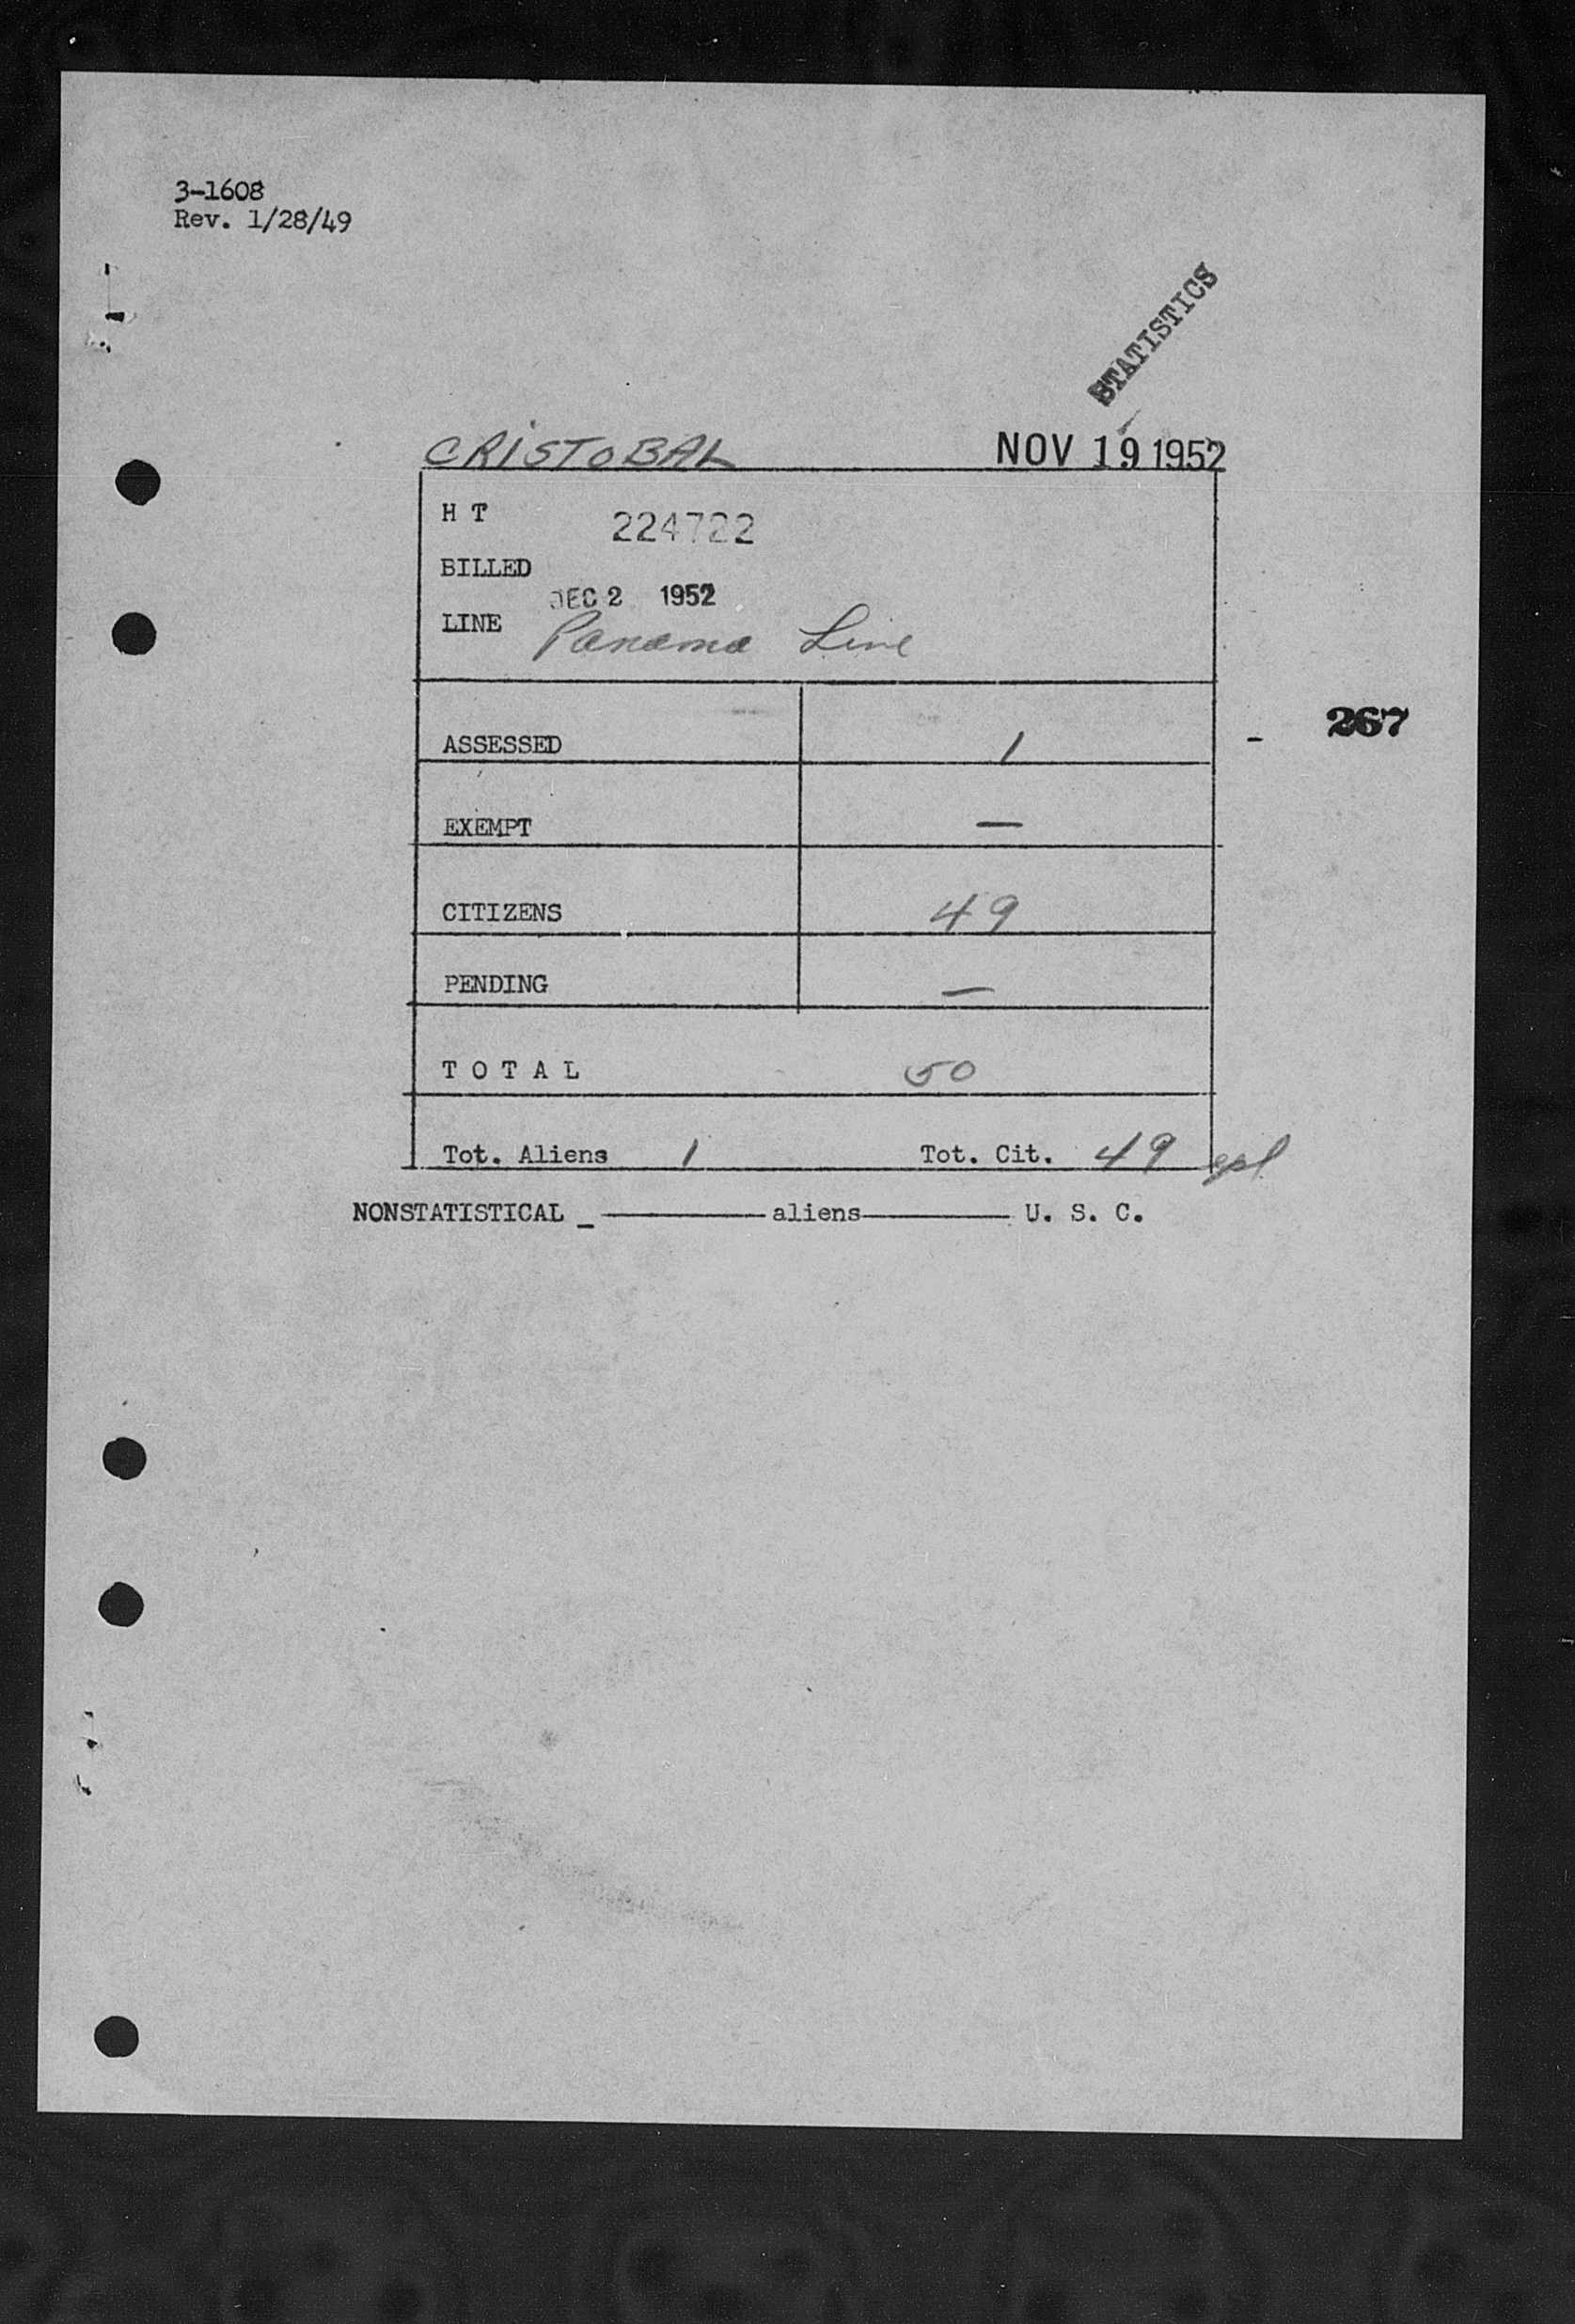 3-1608
Rev. 1/28/49
STATISTICS
CRISTOBAL NOV 19 1952
H T 224722
BILLED
DEC 2 1952
LINE Panama Line
ASSESSED 1 - 267
EXEMPT —
CITIZENS 49
PENDING —
T O T A L 50
Tot. Aliens 1 Tot. Cit. 49
NONSTATISTICAL _ ——— aliens ——— U. S. C.